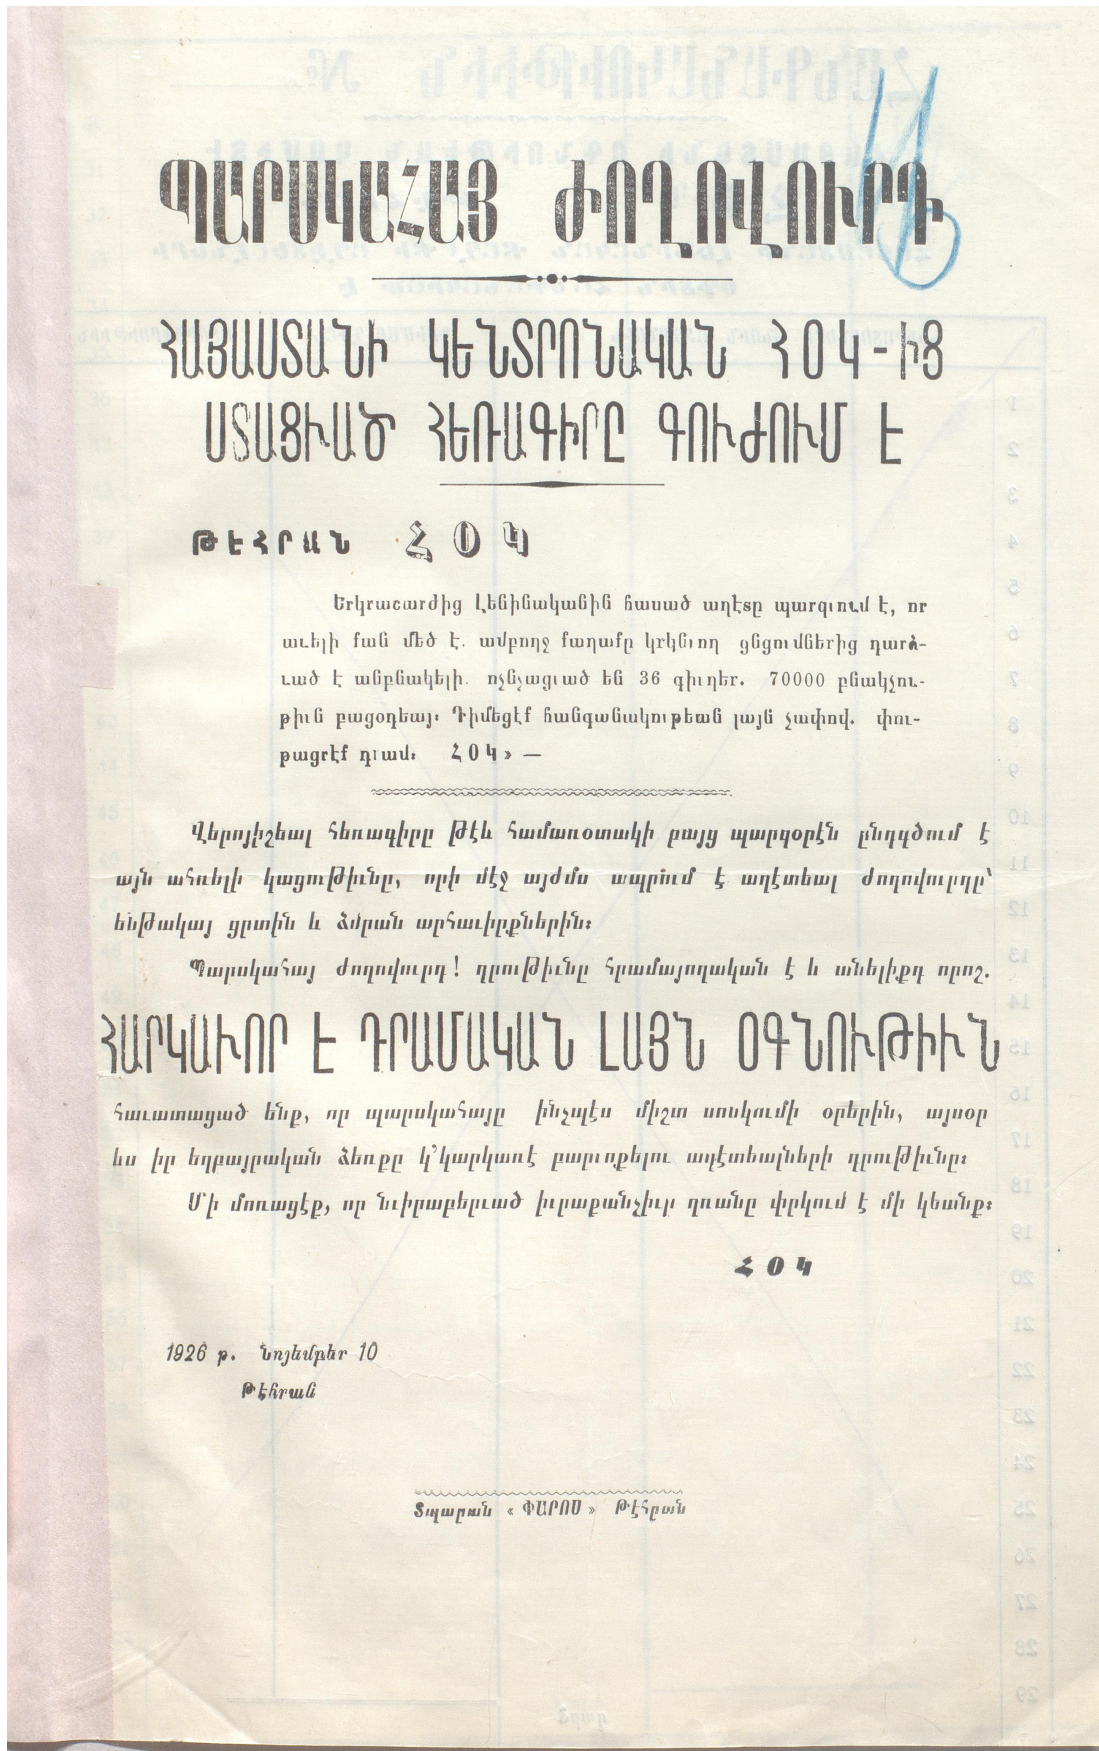 ՊԱՐՍԿԱՀԱՅ ԺՈՂՈՎՈՒՐԴ
ՀԱՅԱՍՏԱՆԻ ԿԵՆՏՐՈՆԱԿԱՆ ՀՕԿ-ԻՑ
ՍՏԱՑՒԱԾ ՀԵՌԱԳԻՐԸ ԳՈՒԺՈՒՄ Է
ԹԷՀՐԱՆ ՀՕԿ
Երկրաշարժից Լենինականին հասած աղէտը պարզւում է, որ
աւելի քան մեծ է. ամբողջ քաղաքը կրկնւող ցնցումներից դարձ-
ւած է անբնակելի. ոչնչացւած են 36 գիւղեր. 70000 բնակչու-
թիւն բացօդեայ: Դիմեցէք հանգանակութեան լայն չափով. փու-
թացրէք դրամ: ՀՕԿ» —
Վերոյիշեալ հեռագիրը թէև համառօտակի բայց պարզօրէն ընդգծում է
այն ահռելի կացութիւնը, որի մէջ այժմս ապրում է աղէտեալ ժողովուրդը՝
ենթակայ ցրտին և ձմրան արհաւիրքներին:
Պարսկահայ ժողովուրդ! դրութիւնը հրամայողական է և անելիքդ որոշ.
ՀԱՐԿԱՒՈՐ Է ԴՐԱՄԱԿԱՆ ԼԱՅՆ ՕԳՆՈՒԹԻՒՆ
հաւատացած ենք, որ պարսկահայը ինչպէս միշտ սոսկումի օրերին, այսօր
ևս իր եղբայրական ձեռքը կ՚կարկառէ բարւոքելու աղէտեալների դրութիւնը:
Մի մոռացէք, որ նւիրաբերւած իւրաքանչիւր ղռանը փրկում է մի կեանք:
ՀՕԿ
1926 թ. Նոյեմբեր 10
Թէհրան
Տպարան «ՓԱՐՈՍ» Թէհրան